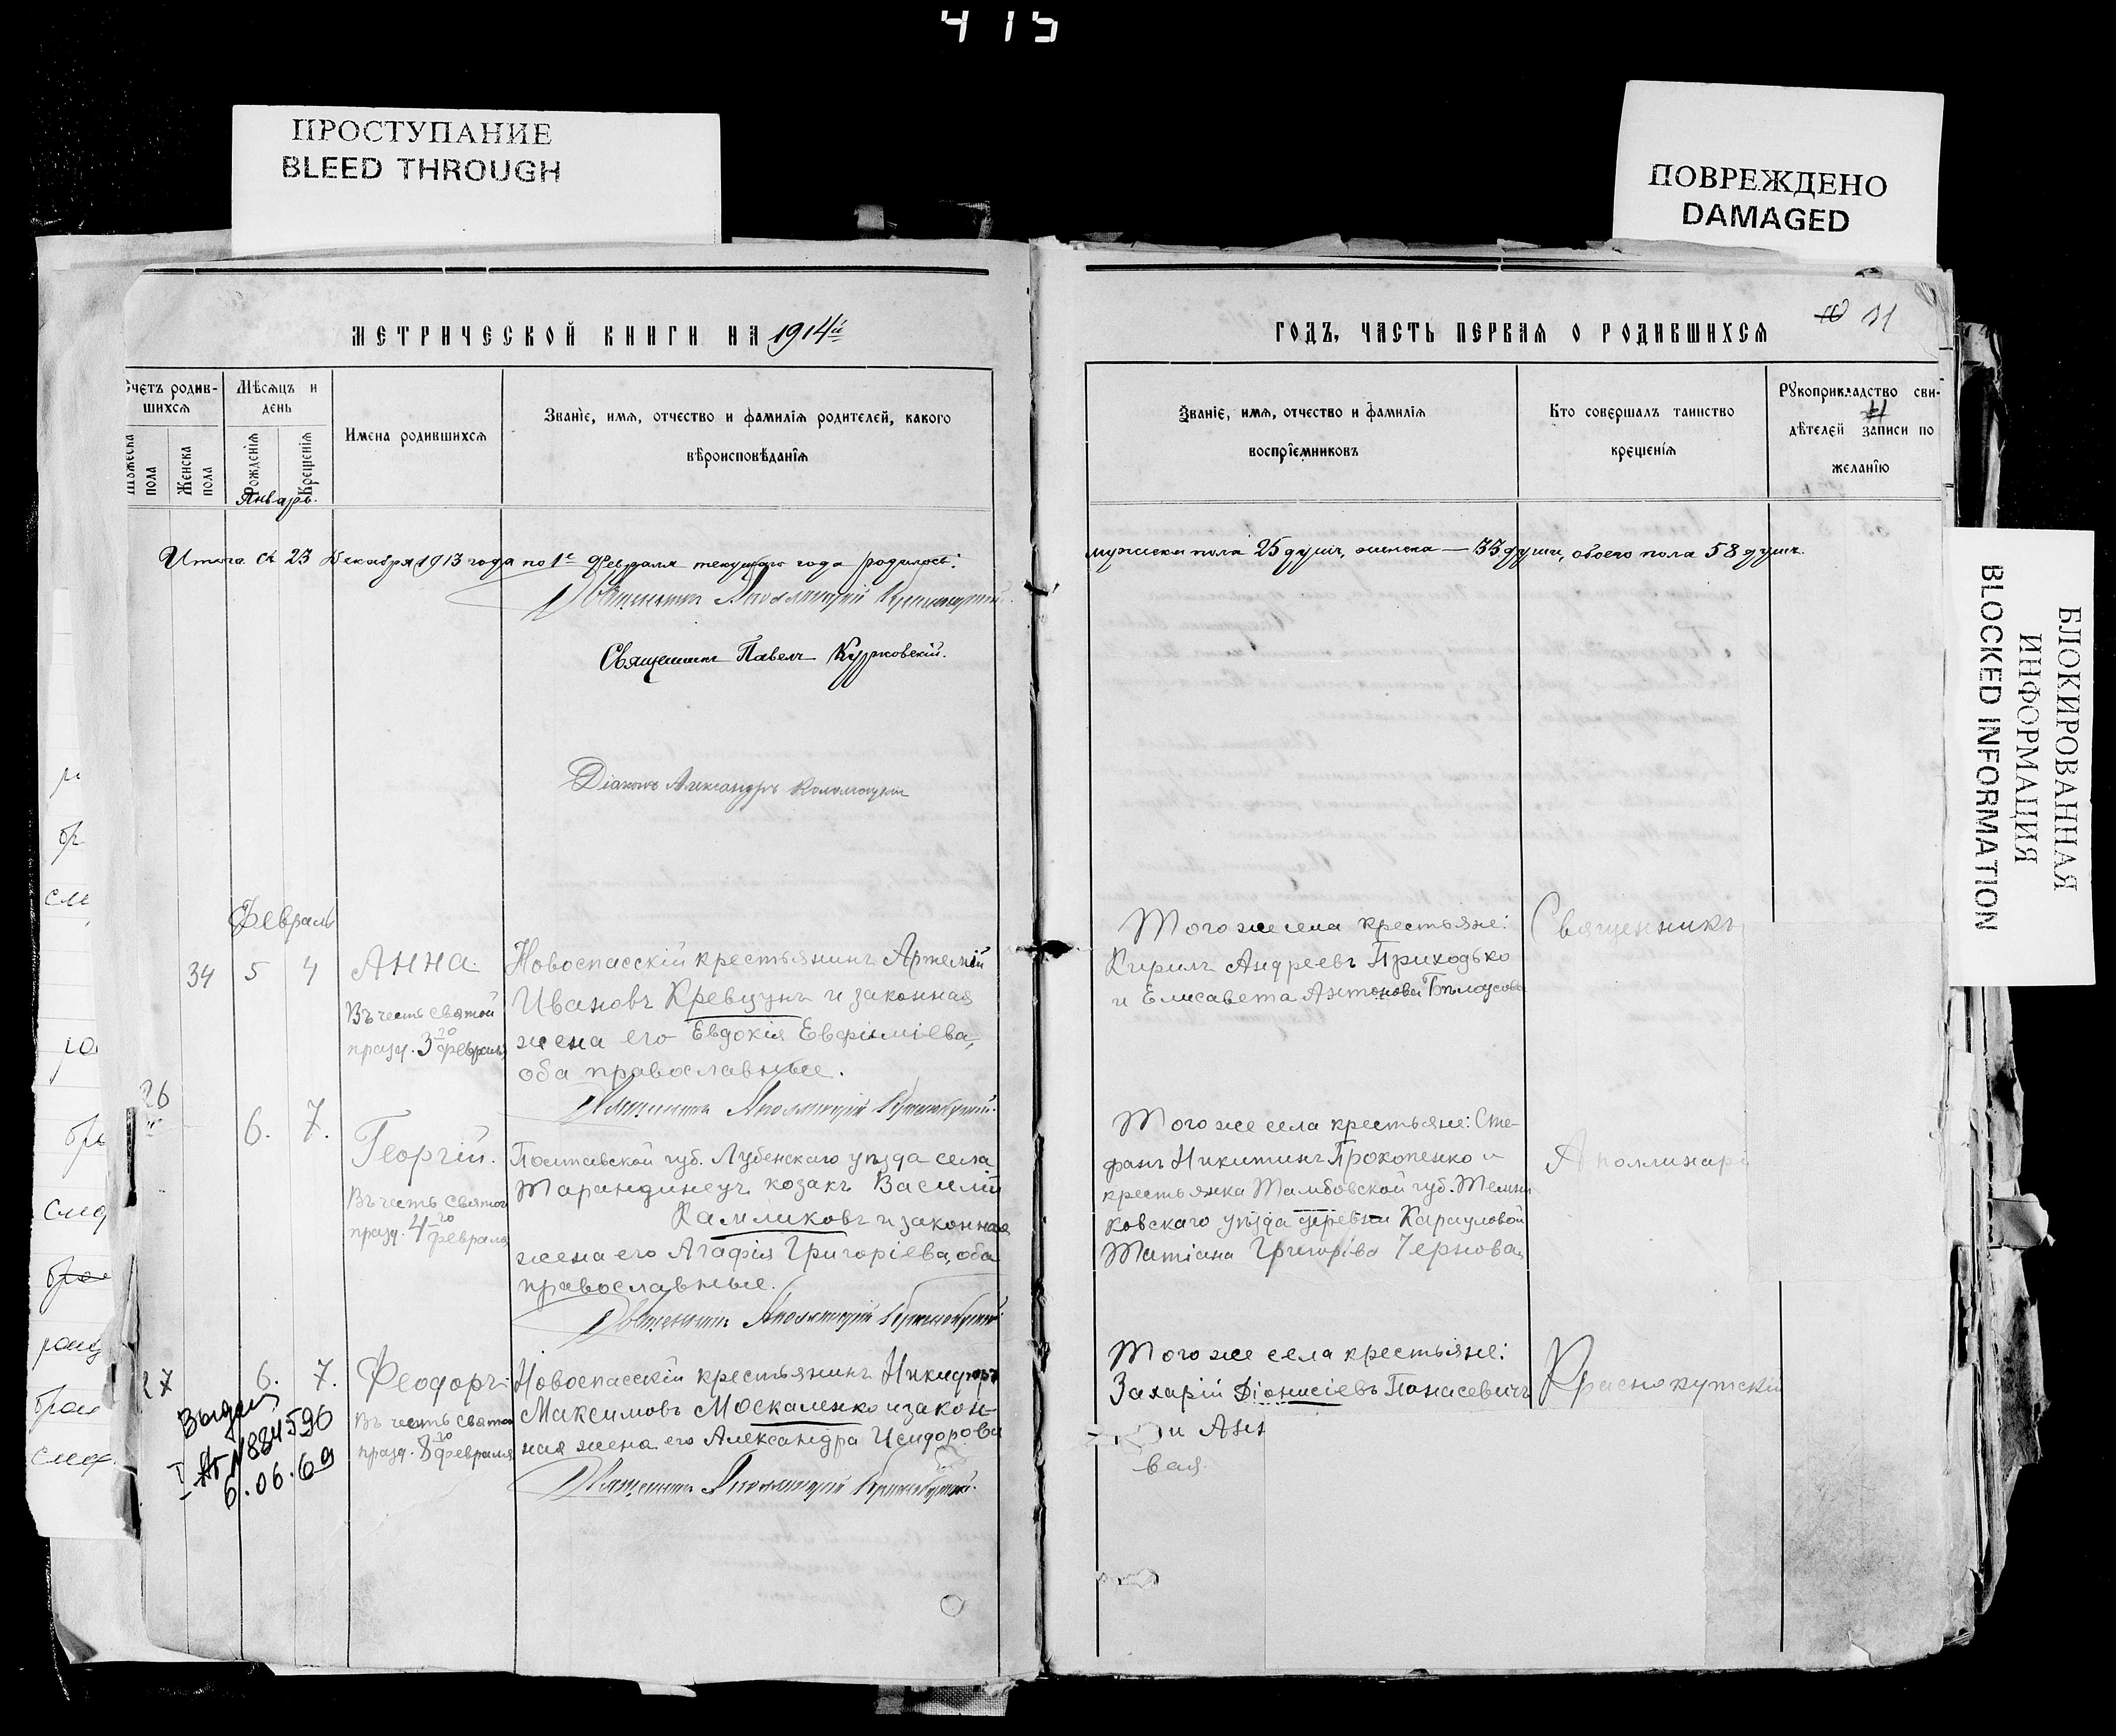 415
ПРОСТУПАНИЕ
BLEED THROUGH
ПОВРЕЖДЕНО
DAMAGED
БЛОКИРОВАННАЯ
ИНФОРМАЦИЯ
BLOCKED INFORMATION
МЕТРИЧЕСКОЙ КНИГИ НА 1914й
Счетъ родив-
шихся
Мужеска
пола
Женска
пола
Мѣсяцъ и
день
Рожденія
Крещенія
Имена родившихся
Званіе, имя, отчество и фамилія родителей, какого
вѣроисповѣданія
Январь.
Итого съ 23 Декабря 1913 года по 1е Февраля текущаго года родилось:
Священникъ Аполлинарій Краснокутскій
Священникъ Павелъ Курковскій.
Діаконъ Александръ
Февраль
34 5 4 Анна.
Въ честь святой
празд. 3го февраля
Новоспасскій крестьянинъ Артемій
Ивановъ Кревцунъ и законная
жена его Евдокія Евфиміева,
оба православные.
Священникъ Аполлинарій Краснокутскій.
26 6. 7. Георгій.
Въ честь святого
празд. 4го февраля
Полтавской губ. Лубенскаго уѣзда села
Тарандинецъ козакъ Василій
Камликовъ и законная
жена его Агафія Григоріева, оба
православные.
Священникъ Аполлинарій Краснокутскій
27 6. 7. Феодоръ.
Въ честь святого
празд. 8го февраля
Новоспасскій крестьянинъ Никифоръ
Максимовъ Москаленко и закон-
ная жена его Александра Исидорова
Священникъ Аполлинарій Краснокутскій.
Выдан
I АГ N 884590
6.06.69
ГОДЪ, ЧАСТЬ ПЕРВАЯ О РОДИВШИХСЯ
10 11
Званіе, имя, отчество и фамилія
воспріемниковъ
Кто совершалъ таинство
крещенія
Рукоприкладство сви-
дѣтелей записи по
желанію
мужска пола 25 душъ, женска — 33 души, обоего пола 58 душъ.
Того же села крестьяне:
Кирилъ Андреевъ Приходько
и Елисавета Антонова Бѣлоусова
Священникъ
Того же села крестьяне: Сте-
фанъ Никитинъ Прокопенко и
крестьянка Тамбовской губ. Темни
ковскаго уѣзда деревни Карауловой
Татіана Григоріева Чернова
Аполлинарі
Того же села крестьяне:
Захарій Діонисіевъ Панасевичъ
и Анн
вая.
Краснокутскій